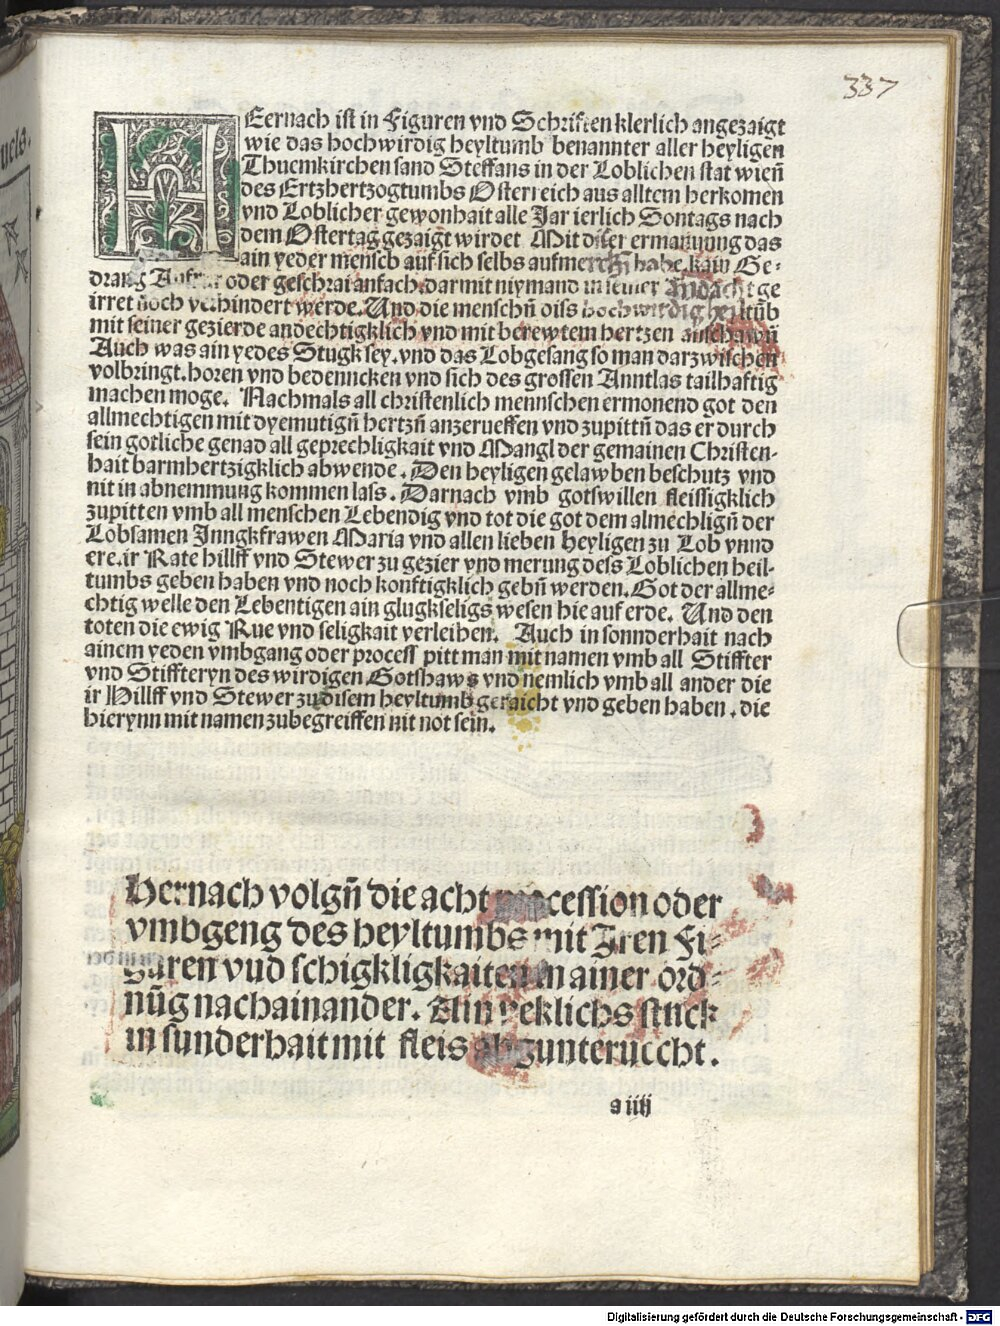 337
HEernach ist in Figuren vnd Schrifften klerlich angezaigt
wie das hochwirdig heyltumb benannter aller heyligen
Thuemkirchen sand Steffans in der Loblichen stat wienn̄
des Ertzhertzogtumbs Osterreich aus alltem herkomen
vnd Loblicher gewonhait alle Jar ierlich Sontags nach
dem Ostertag gezaigt wirdet. Mit diser ermanung das
ain yeder mensch auf sich selbs aufmerckh habe kain Ge-
drang Aufrur oder geschrai anfach. darmit niymand in seiner Andacht ge
irret noch verhindert werde. Und die menschn̄ diss hochwirdig heyltūb
mit seiner gezierde andechtigklich vnd mit berewtem hertzen anschawn̄
Auch was ain yedes Stugk sey. vnd das Lobgesang so man darzwischen
volbringt. horen vnd bedenncken vnd sich des grossen Anntlas tailhaftig
machen moge. Nachmals all christenlich mennschen ermonend got den
allmechtigen mit dyemutign̄ hertzn̄ anzerueffen vnd zupittn̄ das er durch
sein gotliche genad all geprechligkait vnd Mangl der gemainen Christen-
hait barmhertzigklich abwende. Den heyligen gelawben beschutz vnd
nit in abnemmung kommen lass. Darnach vmb gotswillen fleissigklich
zupitten vmb all menschen Lebendig vnd tot die got dem almechtign̄ der
Lobsamen Junngkfrawen Maria vnd allen lieben heyligen zu Lob vnnd
ere. ir Rate hillff vnd Stewer zu gezier vnd merung dess Loblichen heil-
tumbs geben haben vnd noch konftigklich gebn̄ werden. Got der allme-
chtig welle den Lebentigen ain glugkseligs wesen hie auf erde. Und den
toten die ewig Rue vnd seligkait verleihen. Auch in sonnderhait nach
ainem yeden vmbgang oder process pitt man mit namen vmb all Stiffter
vnd Stiffteryn des wirdigen Gotshaws vnd nemlich vmb all ander die
ir Hillff vnd Stewer zu disem heyltumb geraicht vnd geben haben. die
hierynn mit namen zubegreiffen nit not sein.
Hernach volgn̄ die acht procession oder
vmbgeng des heyltumbs mit Jren Fi-
guren vnd schigkligkaiten in ainer ord-
nūg nachainander. Ain yeklichs stuck
in sunderhait mit fleis abzunterucht.
a iiij
Digitalisierung gefördert durch die Deutsche Forschungsgemeinschaft - DFG